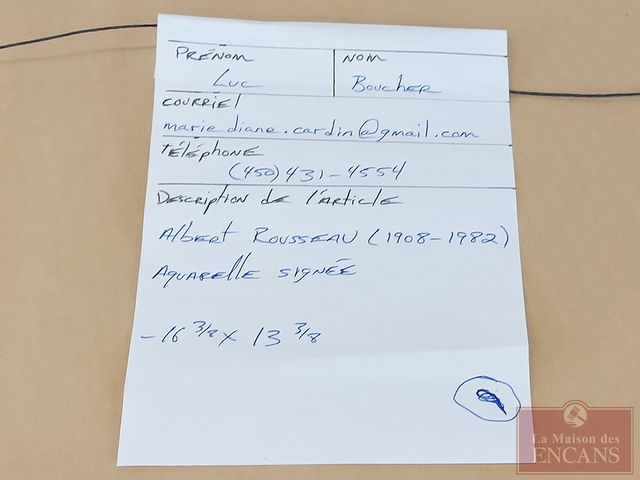 PRÉNOM NOM
Luc Boucher
COURRIEL
marie diane.cardin@gmail.com
TÉLÉPHONE
(450) 431-4554
Description de l'article
Albert Rousseau (1908-1982)
Aquarelle signée
- 16 3/8 x 13 3/8
La Maison des
ENCANS